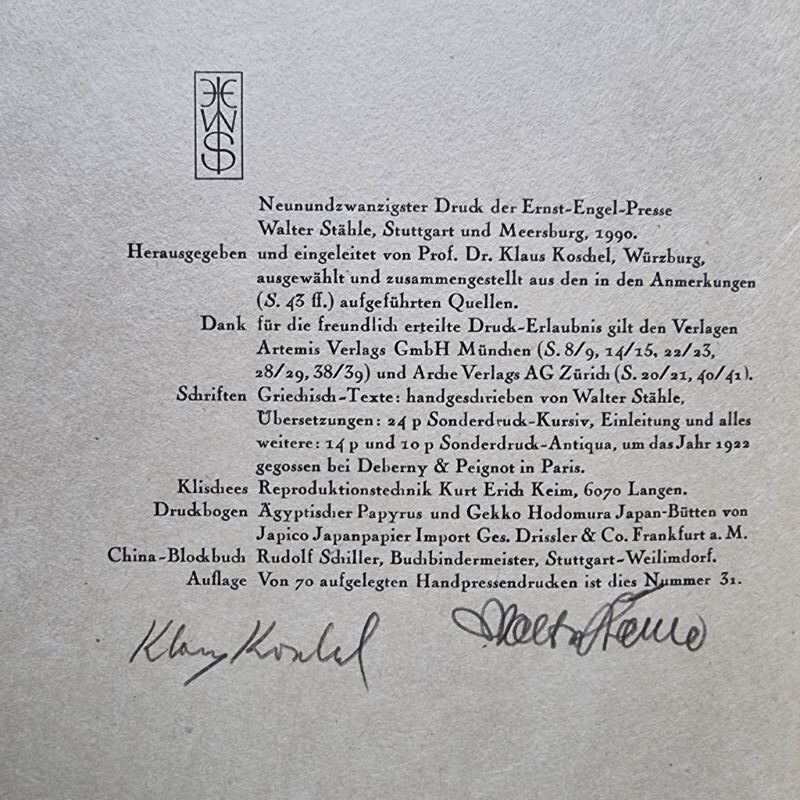 Neunundzwanzigster Druck der Ernst-Engel-Presse
Walter Stähle, Stuttgart und Meersburg, 1990.
Herausgegeben und eingeleitet von Prof. Dr. Klaus Koschel, Würzburg,
ausgewählt und zusammengestellt aus den in den Anmerkungen
(S. 43 ff.) aufgeführten Quellen.
Dank für die freundlich erteilte Druck-Erlaubnis gilt den Verlagen
Artemis Verlags GmbH München (S. 8/9, 14/15, 22/23,
28/29, 38/39) und Arche Verlags AG Zürich (S. 20/21, 40/41).
Schriften Griechisch-Texte: handgeschrieben von Walter Stähle,
Übersetzungen: 24 p Sonderdruck-Kursiv, Einleitung und alles
weitere: 14 p und 10 p Sonderdruck-Antiqua, um das Jahr 1922
gegossen bei Deberny & Peignot in Paris.
Klischees Reproduktionstechnik Kurt Erich Keim, 6070 Langen.
Druckbogen Ägyptischer Papyrus und Gekko Hodomura Japan-Bütten von
Japico Japanpapier Import Ges. Drissler & Co. Frankfurt a. M.
China-Blockbuch Rudolf Schiller, Buchbindermeister, Stuttgart-Weilimdorf.
Auflage Von 70 aufgelegten Handpressendrucken ist dies Nummer 31.
Klaus Koschel Walter Stähle